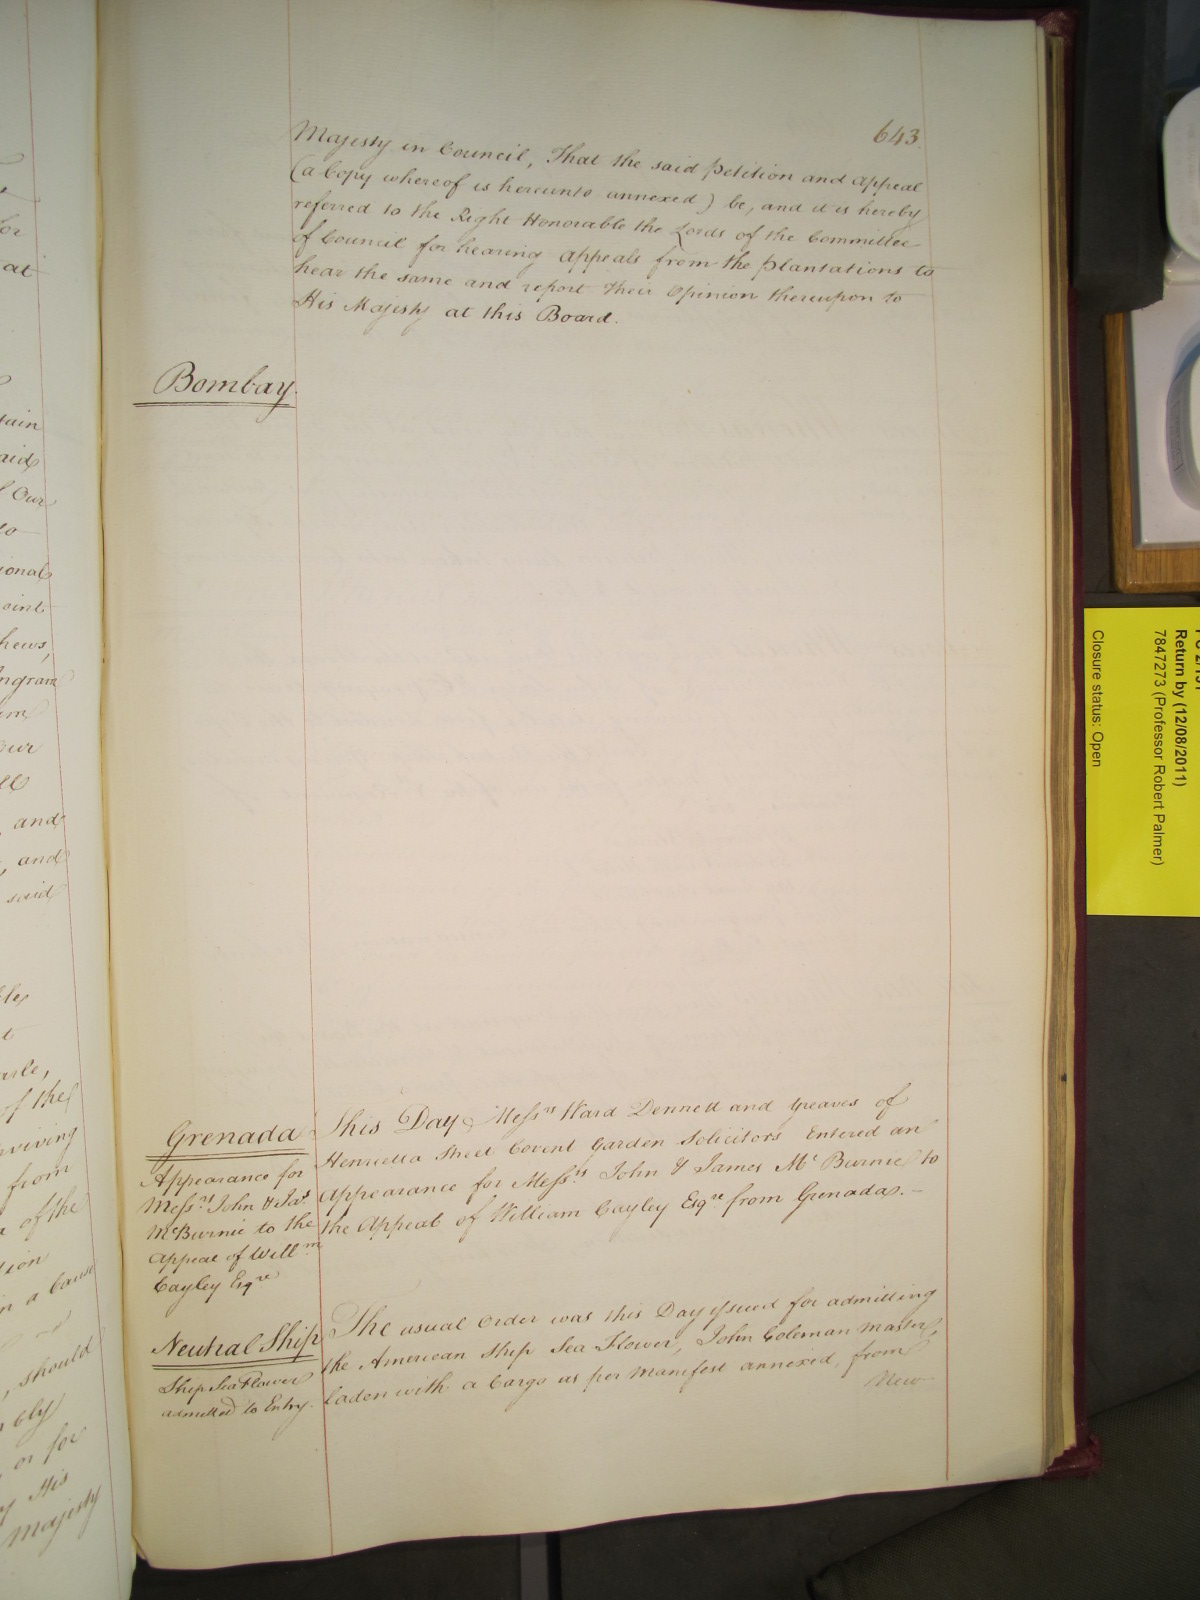 643.
Majesty in Council, That the said Petition and Appeal
(a Copy whereof is hereunto annexed) be, and it is hereby
referred to the Right Honorable the Lords of the Committee
of Council for hearing Appeals from the Plantations to
hear the same and report their Opinion thereupon to
His Majesty at this Board.
Bombay.
Grenada
Appearance for
Messrs. John & Jas.
McBurnie to the
Appeal of Willm
Cayley Esqre
This Day Messrs Ward Dennett and Greaves of
Henrietta Street Covent Garden Solicitors Entered an
Appearance for Messrs. John & James Mc Burnie to
the Appeal of William Cayley Esqre from Grenada. –
Neutral Ship
Ship Sea Flower
admitted to Entry.
The usual Order was this Day issued for admitting
the American Ship Sea Flower, John Coleman Master,
Laden with a Cargo as per Manifest annexed, from
New
at
said
Our
to
ional
oint
hews,
ngram
our
and
, and
said
of the
rviving
from
of the
in a Cause
, should
, or for
His
Majesty
Return by (12/08/2011)
7847273 (Professor Robert Palmer)
Closure status: Open